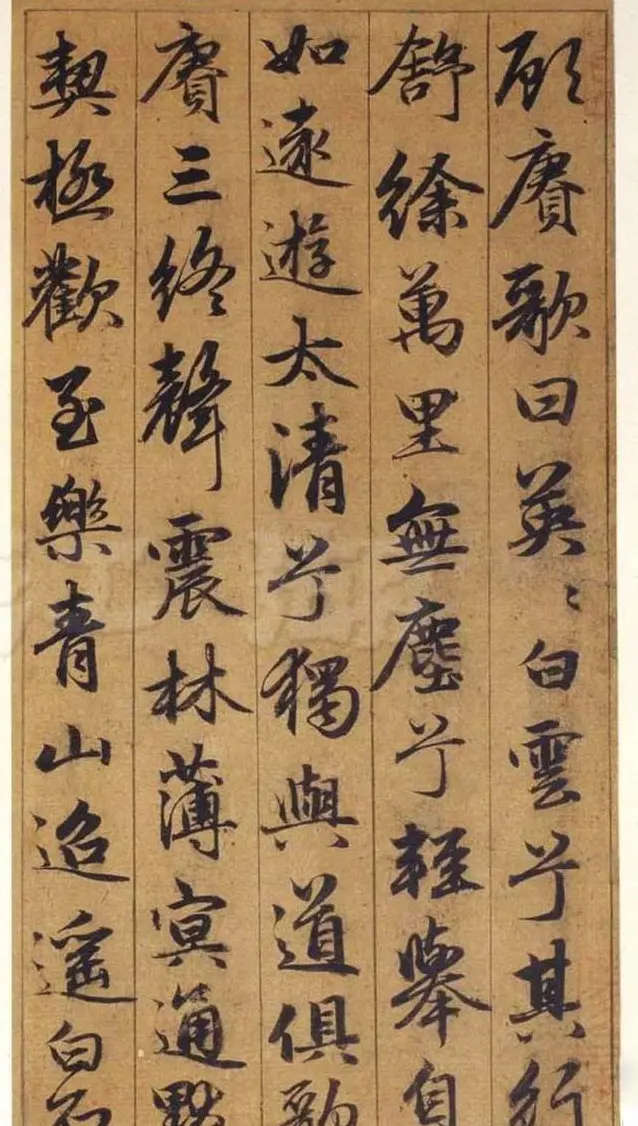 顾賡歌曰英〻白雲兮其行
舒徐萬里無塵兮輕舉自
如遠遊太清兮獨與道俱歌
賡三終聲震林薄冥通默
契極歡至樂青山迢遥白石